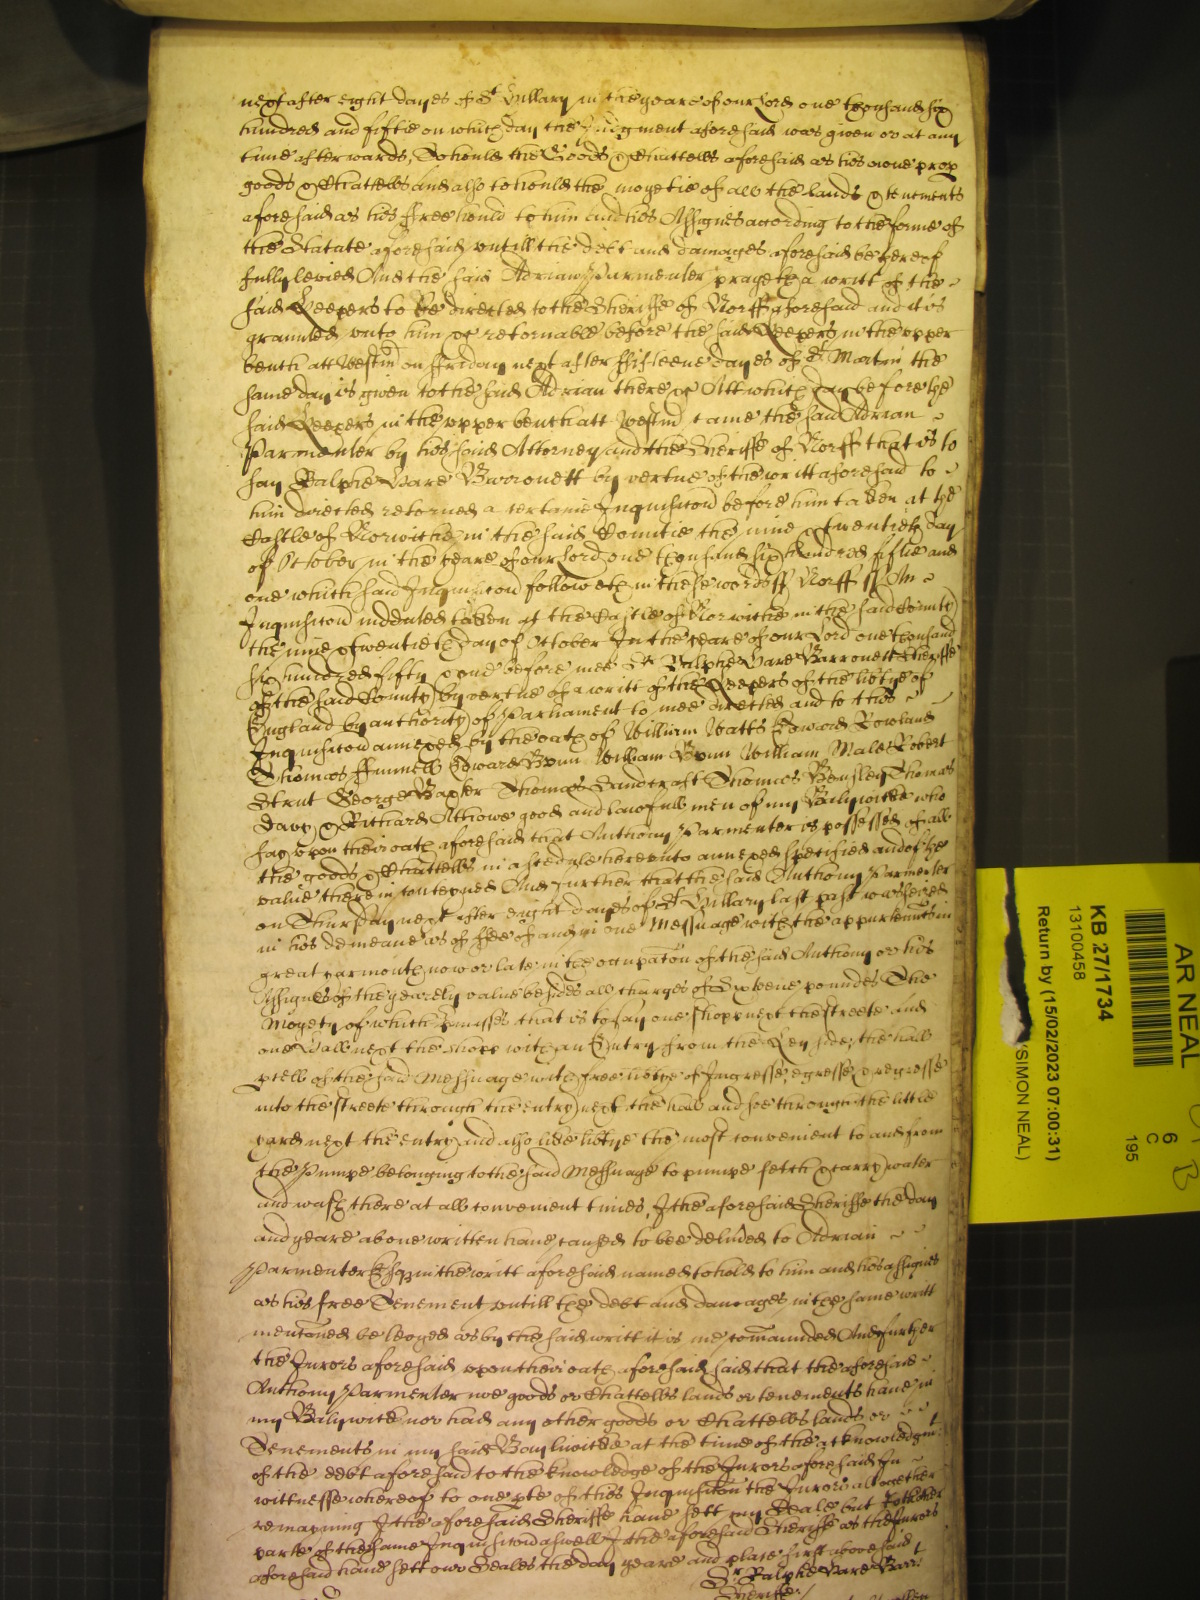 next after eight dayes of St Hillary in the yeare of our Lord one thousand six
hundred and fiftie on which day the Judgment aforesaid was given or at any
time afterwards, To hould the Goods & Chattells aforesaid as his owne prop
goods & Chattells and also to hould the moyetie of all the lands & tenements
aforesaid as his ffree hould to him and his Assignes according to the forme of
the Statute aforesaid untill the debt and damages aforesaid be thereof
fully levied And the said Adrian Parmenter prayeth a writt of the
said Keepers to be directed to the Sheriffe of Norff aforesaid and it is
graunted unto him &c retornable before the said Keepers in the upper
bench att Westm on ffriday next after ffifteene dayes of St Martin the
same day is given to the said Adrian there &c Att which day before the
said Keepers in the upper bench att Westm came the said Adrian
Parmenter by his said Attorney and the Sheriffe of Norff that is to
say Ralphe Hare Barronett by vertue of the writt aforesaid to
him directed retorned a certaine Inquisicon before him taken at the
Castle of Norwiche in the said Countie the nine & twentieth day
of October in the yeare of our Lord one thousand six hundred fiftie and
one which said Inquisicon followeth in these words ss Norff ss An
Inquisicon indented taken at the Castle of Norwiche in the said County
the nine & twentieth day of October In the yeare of our Lord one thousand
six hundred fifty & one before mee Sr Ralphe Hare Barronett Sheriffe
of the said County by vertue of a writt of the Keepers of the libtye of
England by authority of Parliament to mee directed and to this
Inquisicon annexed by the oath of William Watts Edward Rowland
Thomas ffunnell Edward Bunn William Bunn William Male Robert
Strut George Baxter Thomas Sandcraft Thomas Bensley Thomas
Davy & Richard Athowe good and lawfull men of my Bayliwicke who
say upon their oath aforesaid that Anthony Parmenter is possessed of all
the goods & Chattells in a scedule hereunto annexed specified and of the
value therein conteyned And further that the said Anthony Parmenter
on Thursday next after eight dayes of St Hillary last past was seized
in his demeane as of ffee of and in one Messuage with the appurtenncs in
great yarmouth now or late in the occupaton of the said Anthony or his
Assignes of the yearely value besides all charges of Sixteene poundes The
Moyety of which pmisses that is to say one shopp next the streete and
one Hall next the shopp with an Entry from the Key side, the hall
pcell of the said Messuage with free libtye of Ingresse, egresse & regresse
into the streete through the entry next the hall and soe through the little
yard next the entry and also like libtye the most convenient to and from
the Pumpe belonging to the said Messuage to pumpe fetch & carry water
and wash there at all convenient times, I the aforesaid Sheriffe the day
and yeare above written have caused to bee delivded to Adrian
Parmenter Esq in the writt aforesaid named to hold to him and his assignes
as his free Tenement untill the debt and damages in the same writt
mentoned be leyed as by the said writt it is me comaunded And further
the Jurors aforesaid upon their oath aforesaid said that the aforesaid
Anthony Parmenter noe goods or Chattells lands or tenements have in
my Bayliwick nor had any other goods or Chattells lands or
Tenements in my said Bayliwicke at the time of the acknowledgmt
of the debt aforesaid to the knowledge of the Jurors aforesaid In
wittnesse whereof to one pte of this Inquisicon the Jurors altogether
remayning I the aforesaid Sheriffe have sett my Seale but to thother
parte of the same Inquisicon aswell I the aforesaid Sheriffe as the Jurors
aforesaid have sett our Seales the day yeare and place first abovesaid
Sr Ralphe Hare Barrt
Sheriffe
AR NEAL
6
C
195
KB 27/1734
13100458
Return by (15/02/2023 07:00:31)
(SIMON NEAL)
B